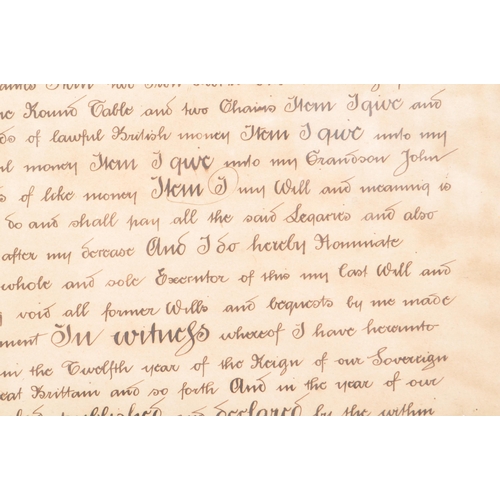 Item two Iron
he Round Table and two Chairs Item I give and
ds of lawful British money Item I give unto my
ul money Item I give unto my Grandson John
s of like money Item I my Will and meaning is
do and shall pay all the said Legacies and also
after my decease And I do hereby Nominate
whole and sole Executor of this my Last Will and
void all former Wills and bequests by me made
ment In witness whereof I have hereunto
in the Twelfth year of the Reign of our Sovereign
eat Brittain and so forth And in the year of our
published and declared by the within